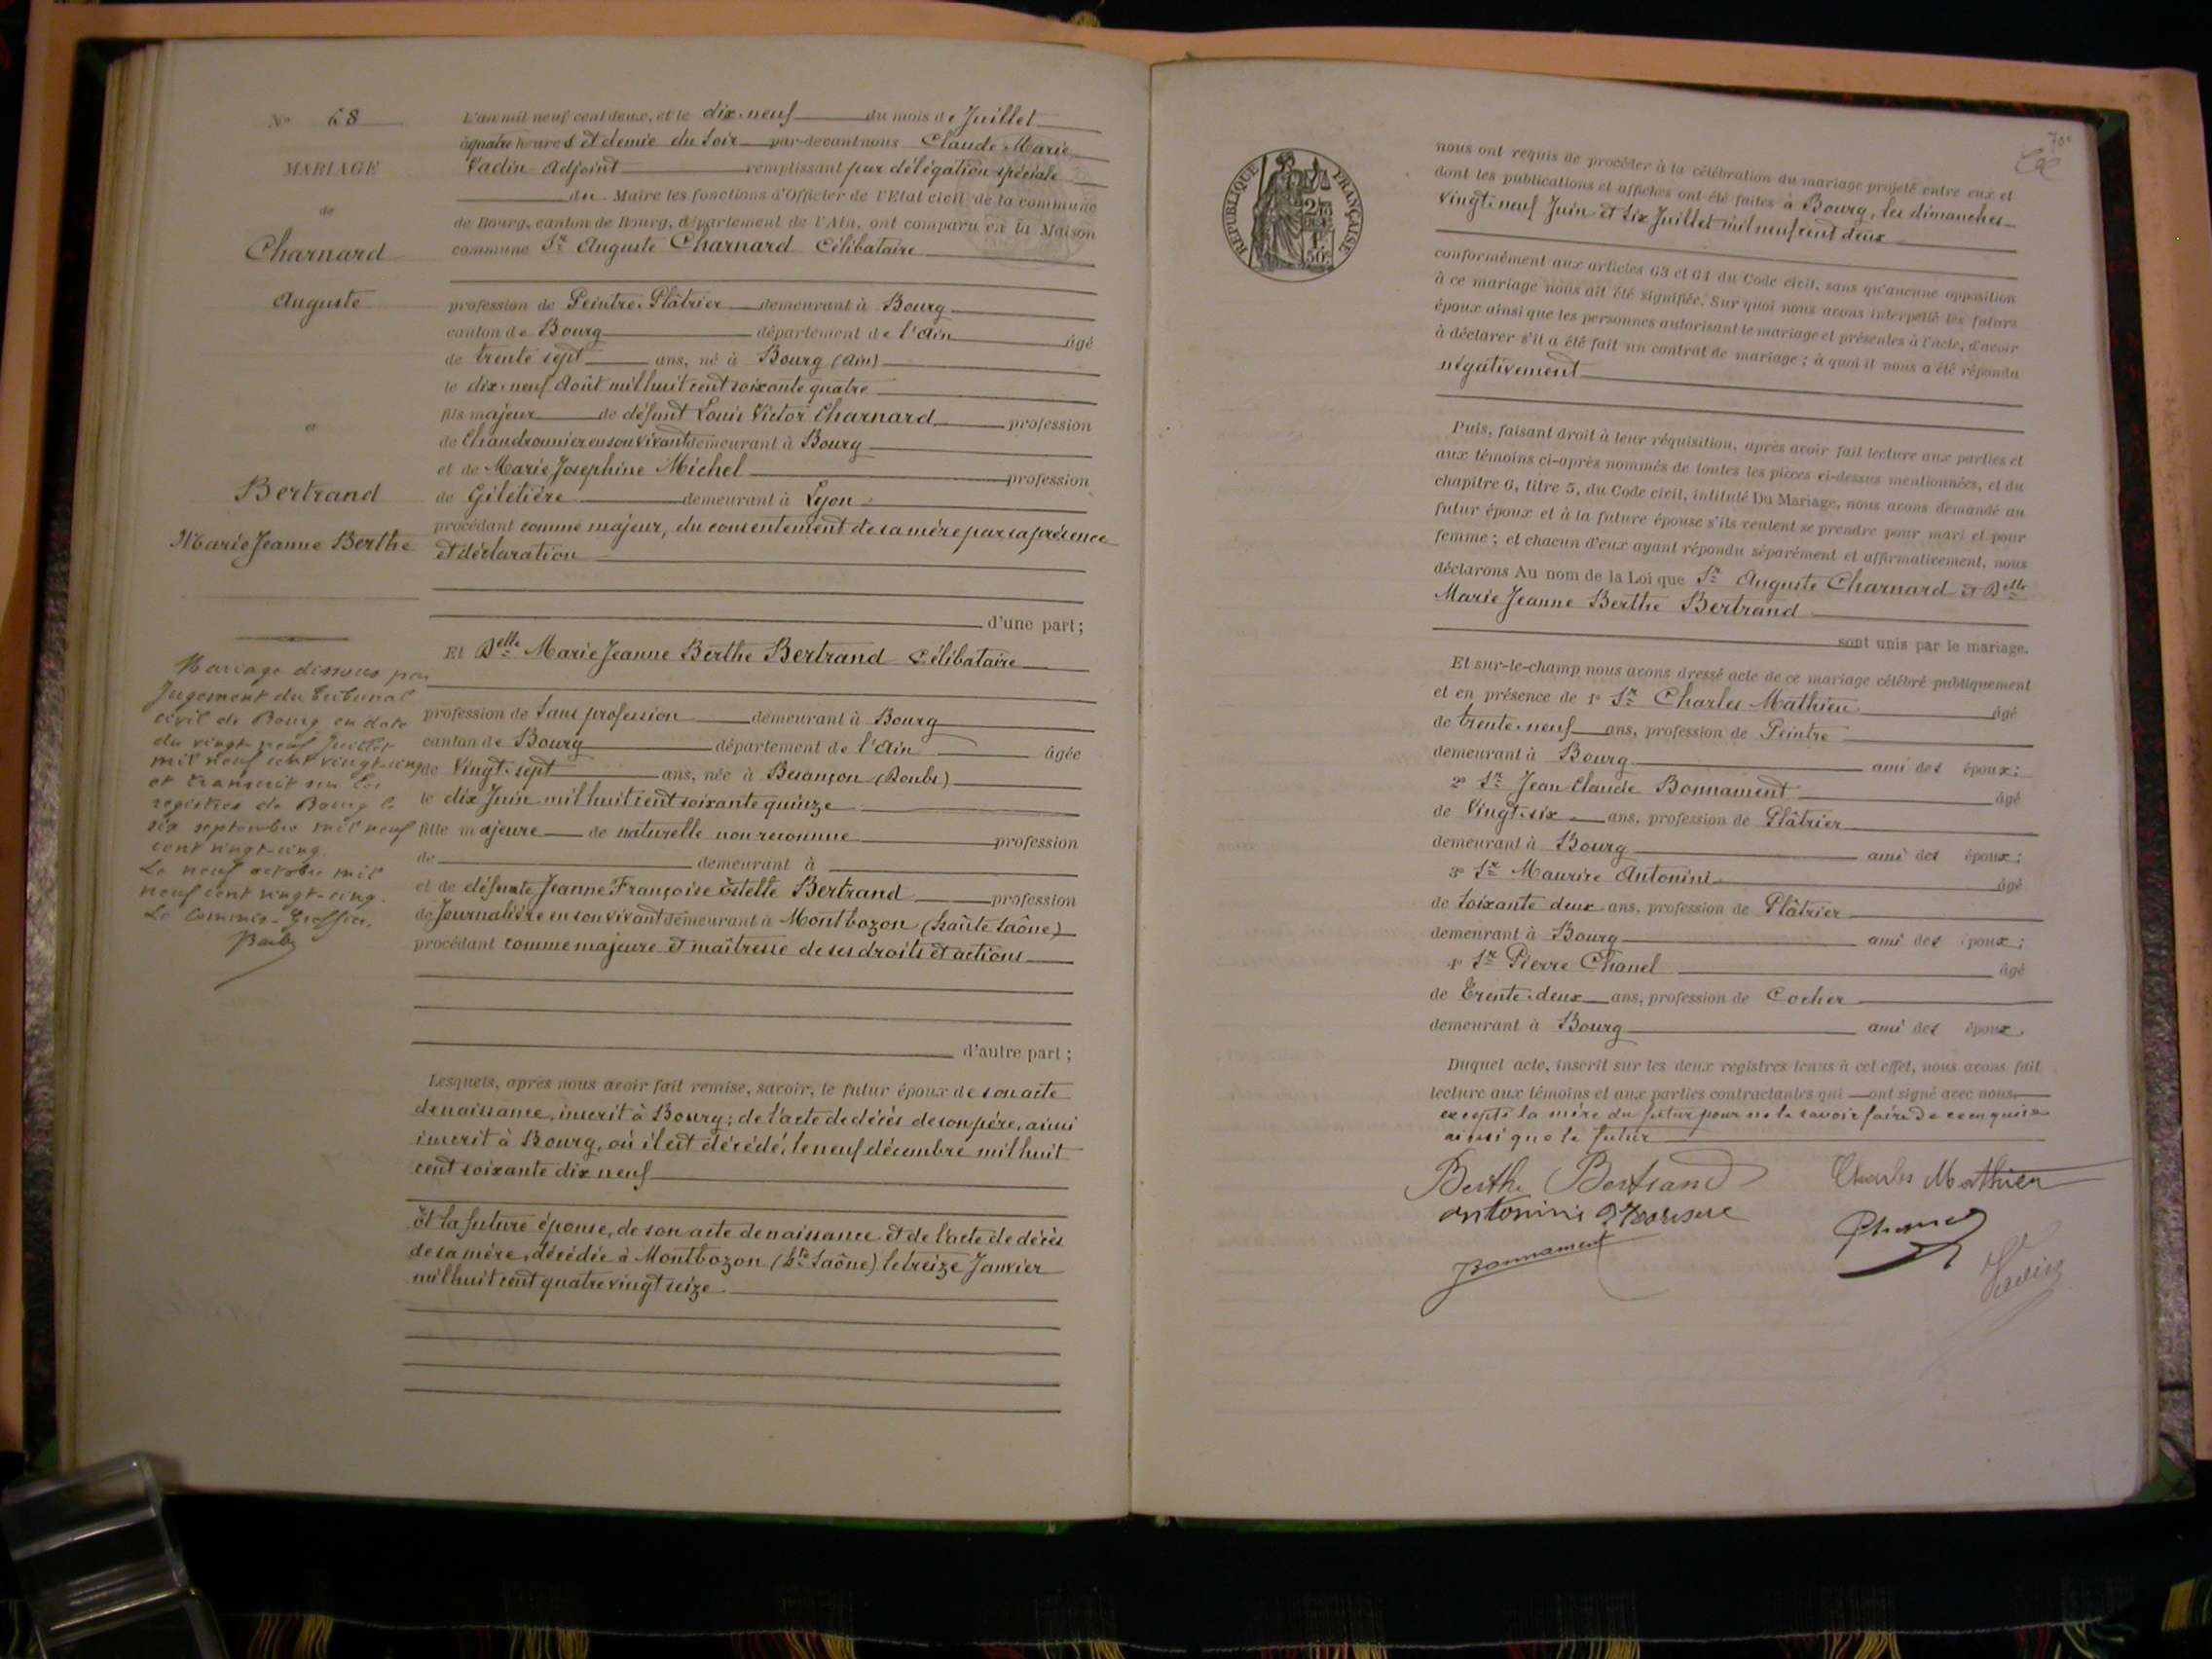 No 68
MARIAGE
de
Charnard
Auguste
et
Bertrand
Marie Jeanne Berthe
Mariage dissous par
Jugement du Tribunal
civil de Bourg en date
du vingt-neuf Juillet
mil neuf cent vingt-cinq
et transcrit sur les
registres de Bourg le
six septembre mil neuf
cent vingt-cinq.
Le neuf octobre mil
neuf cent vingt-cinq.
Le Commis-Greffier,
L'an mil neuf cent deux, et le dix-neuf du mois de Juillet
à quatre heures et demie du soir par-devant nous Claude Marie
Vadin Adjoint remplissant par délégation spéciale
du Maire les fonctions d'Officier de l'Etat civil de la commune
de Bourg, canton de Bourg, département de l'Ain, ont comparu en la Maison
commune Sr Auguste Charnard Célibataire
profession de Peintre-Plâtrier demeurant à Bourg
canton de Bourg département de l'Ain âgé
de trente sept ans, né à Bourg (Ain)
le dix-neuf Août mil huit cent soixante quatre
fils majeur de défunt Louis Victor Charnard profession
de Chaudronnier en son vivant demeurant à Bourg
et de Marie Josephine Michel profession
de Giletière demeurant à Lyon
procédant comme majeur, du consentement de sa mère par sa présence
et déclaration
d'une part;
Et Delle Marie Jeanne Berthe Bertrand Célibataire
profession de Sans profession demeurant à Bourg
canton de Bourg département de l'Ain âgée
de Vingt-sept ans, née à Besançon (Doubs)
le dix Juin mil huit cent soixante quinze
fille majeure de naturelle non reconnue profession
de demeurant à
et de défunte Jeanne Françoise Estelle Bertrand profession
de Journalière en son vivant demeurant à Montbozon (Haute Saône)
procédant comme majeure et maîtresse de ses droits et actions
d'autre part;
Lesquels, après nous avoir fait remise, savoir, le futur époux de son acte
de naissance, inscrit à Bourg; de l'acte de décès de son père, aussi
inscrit à Bourg, où il est décédé, le neuf décembre mil huit
cent soixante dix neuf
Et la future épouse, de son acte de naissance et de l'acte de décès
de sa mère, décédée à Montbozon (Hte Saône) le treize Janvier
mil huit cent quatre vingt seize
70e
REPUBLIQUE FRANÇAISE
50c
nous ont requis de procéder à la célébration du mariage projeté entre eux et
dont les publications et affiches ont été faites à Bourg, les dimanches
Vingt-neuf Juin et six Juillet mil neuf cent deux
conformément aux articles 63 et 64 du Code civil, sans qu'aucune opposition
à ce mariage nous ait été signifiée. Sur quoi nous avons interpellé les futurs
époux ainsi que les personnes autorisant le mariage et présentes à l'acte, d'avoir
à déclarer s'il a été fait un contrat de mariage; à quoi il nous a été répondu
négativement
Puis, faisant droit à leur réquisition, après avoir fait lecture aux parties et
aux témoins ci-après nommés de toutes les pièces ci-dessus mentionnées, et du
chapitre 6, titre 5, du Code civil, intitulé Du Mariage, nous avons demandé au
futur époux et à la future épouse s'ils veulent se prendre pour mari et pour
femme; et chacun d'eux ayant répondu séparément et affirmativement, nous
déclarons Au nom de la Loi que Sr Auguste Charnard et Delle
Marie Jeanne Berthe Bertrand
sont unis par le mariage.
Et sur-le-champ nous avons dressé acte de ce mariage célébré publiquement
et en présence de 1° Sr Charles Mathieu âgé
de trente-neuf ans, profession de Peintre
demeurant à Bourg ami des époux;
2° Sr Jean Claude Bonnament âgé
de Vingt-six ans, profession de Plâtrier
demeurant à Bourg ami des époux;
3° Sr Maurice Antonini âgé
de soixante deux ans, profession de Plâtrier
demeurant à Bourg ami des époux;
4° Sr Pierre Chanel âgé
de Trente-deux ans, profession de Cocher
demeurant à Bourg ami des époux.
Duquel acte, inscrit sur les deux registres tenus à cet effet, nous avons fait
lecture aux témoins et aux parties contractantes qui ont signé avec nous
excepté la mère du futur pour ne le savoir faire de ce enquise
ainsi que le futur
Berthe Bertrand Charles Mathieu
Antonini Maurice Chanel
Bonnament Vadin